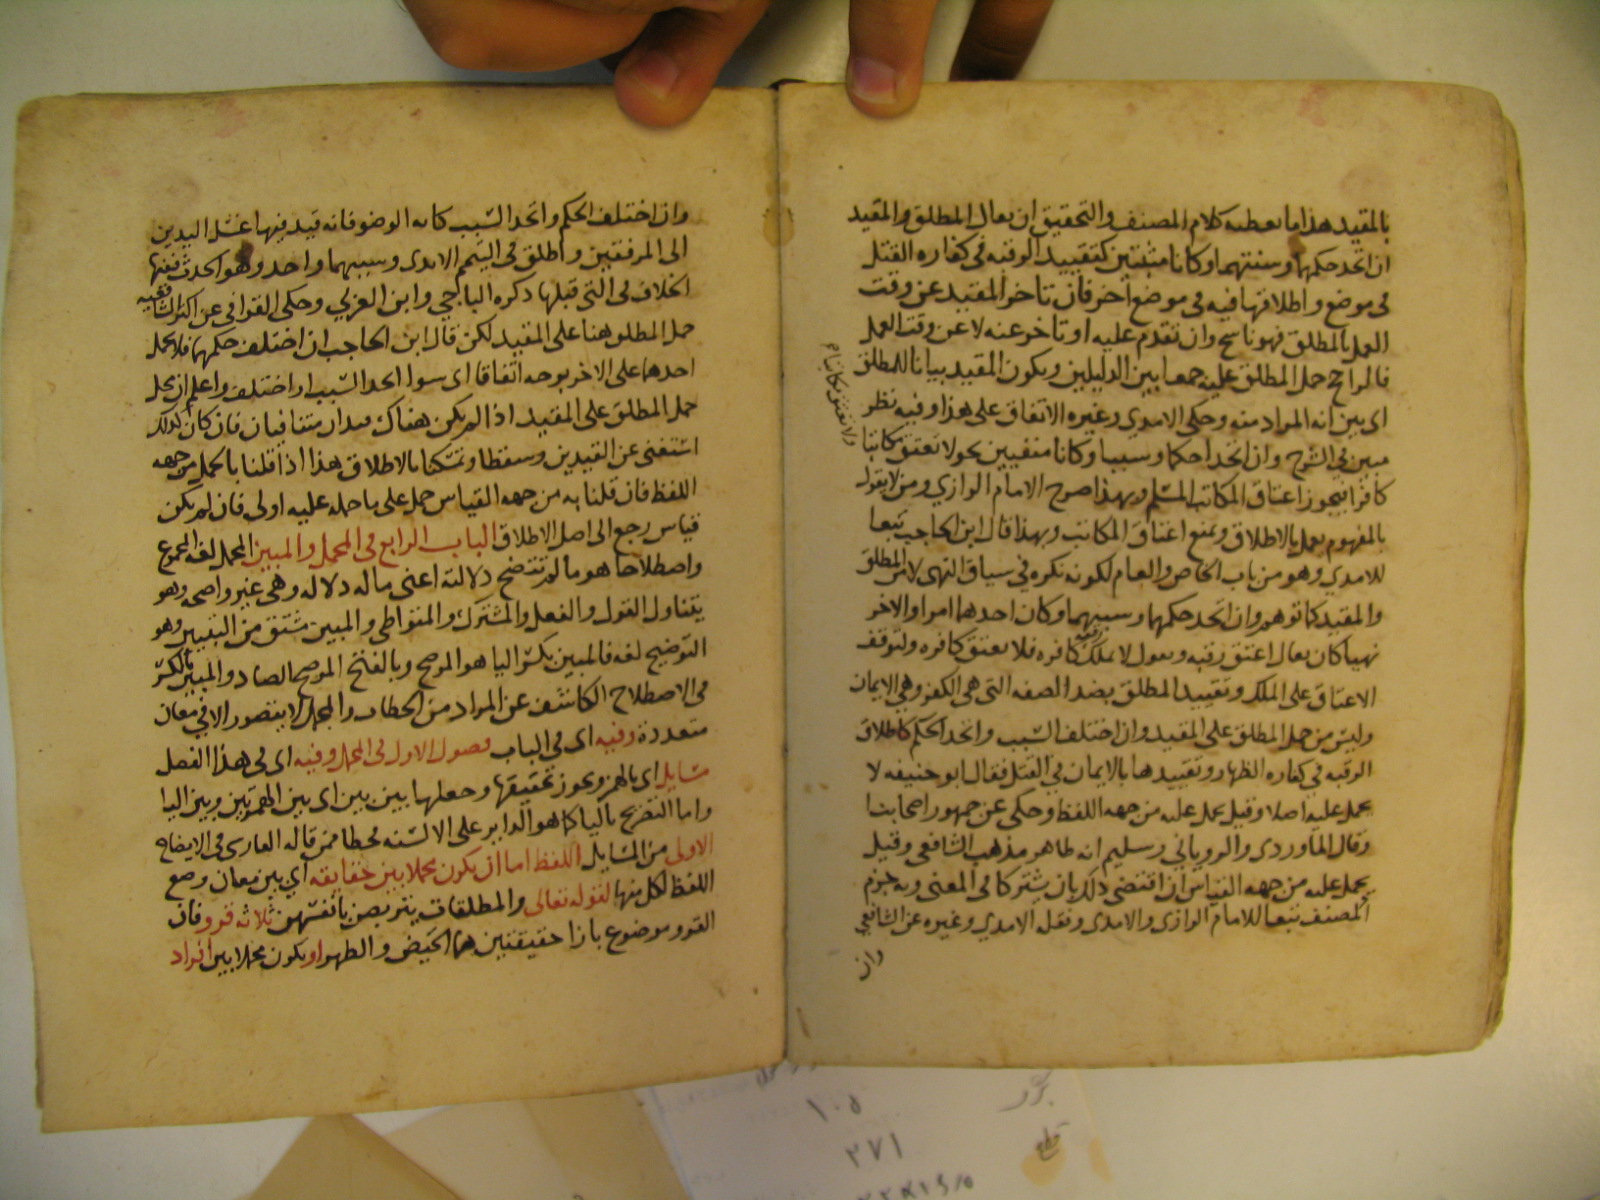 بالمقيد هذا ما يعطيه كلام المصنف والتحقيق ان يقال المطلق والمقيد
ان اتحد حكمهما وسببهما وكانا مثبتين كتقييد الرقبه في كفاره القتل
في موضع واطلاقها فيه في موضع اخر فان تاخر المقيد عن وقت
العمل بالمطلق فهو ناسخ وان تقدم عليه او تاخر عنه لا عن وقت العمل
فالراجح حمل المطلق عليه جمعا بين الدليلين ويكون المقيد بيانا للمطلق
اى يبين انه المراد منه وحكى الامدي وغيره الاتفاق على هذا وفيه نظر
مبين في الشرح وان اتحدا حكما وسببا وكانا منفيين نحو لا تعتق مكاتبا
ولا تعتق مكاتبا
كافرا فيجوز اعتاق المكاتب المسلم وبهذا صرح الامام الرازي ومن لا يقول
بالمفهوم يعمل بالاطلاق ويمنع اعتاق المكاتب وبهذا قال ابن الحاجب تبعا
للامدي وهو من باب الخاص والعام لكونه نكره في سياق النهى لا من المطلق
والمقيد كما توهم وان اتحد حكمهما وسببهما وكان احدهما امرا والاخر
نهيا كان يقال اعتق رقبه ويقول لا تملك رقبه كافره فلا يعتق كافره ولتوقف
الاعتاق على الملك وتقييد المطلق بضد الصفه التى هى الكفر وهي الايمان
وليس من حمل المطلق على المقيد وان اختلف السبب واتحد الحكم كاطلاق
الرقبه في كفاره الظهار وتقييدها بالايمان في القتل فقال ابو حنيفه لا
يحمل عليه اصلا وقيل يحمل عليه من جهه اللفظ وحكى عن جمهور اصحابنا
وقال الماوردى والروياني وسليم انه ظاهر مذهب الشافعي وقيل
يحمل عليه من جهه القياس ان اقتضى ذلك بان يشتركا في المعنى وبه جزم
المصنف تبعا للامام الرازى والامدى ونقله الامدي وغيره عن الشافعي
وان
وان اختلف الحكم واتحد السبب كايه الوضو فانه قيد فيها غسل اليدين
الى المرفقين واطلق في التيمم الايدى وسببهما واحد وهو الحدث ففيها
الخلاف في التى قبلها ذكره الباجي وابن العربي وحكى القرافي عن اكثر الشافعيه
حمل المطلق هنا على المقيد لكن قال ابن الحاجب ان اختلف حكمهما فلا يحمل
احدهما على الاخر بوجه اتفاقا اى سوا اتحد السبب او اختلف واعلم ان محل
حمل المطلق على المقيد اذا لم يكن هناك قيدان متنافيان فان كان كذلك
استغنى عن القيدين وسقطا وتمسكنا بالاطلاق هذا اذا قلنا بالحمل من جهه
اللفظ فان قلنا به من جهه القياس حمل على ما حمله عليه اولى فان لم يكن
قياس رجع الى اصل الاطلاق الباب الرابع في المجمل والمبين المجمل لغه المجموع
واصطلاحا هو ما لم تتضح دلالته اعنى ما له دلاله وهي غير واضحه وهو
يتناول القول والفعل والمشترك والمتواطي والمبين مشتق من التبيين وهو
التوضيح لغه فالمبين بكسر اليا هو الموضح وبالفتح الموضح بالصاد والمبين بالكسر
في الاصطلاح الكاشف عن المراد من الخطاب والمجمل لا يتصور الا في معان
متعددة وفيه اى في الباب فصول الاول في المجمل وفيه اى في هذا الفصل
مسايل اى بالهمز ويجوز تخفيفها وجعلها بين بين اى بين الهمزتين وبين اليا
واما التصريح باليا كما هو الداير على الالسنه فخطا ممن قاله الفارسى في الايضاح
الاولى من المسايل اللفظ اما ان يكون مجملا بين حقايقه اى بين معان وضع
اللفظ لكل منها لقوله تعالى والمطلقات يتربصن بانفسهن ثلاثه قرو فان
القرو موضوع بازا حقيقتين هما الحيض والطهر او يكون مجملا بين افراد
١٠٥
٣٧١